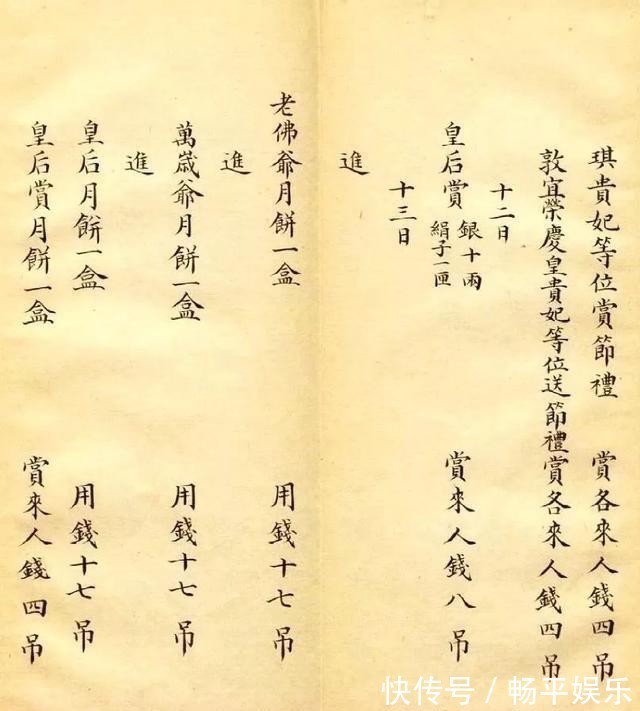 琪貴妃等位賞節禮 賞各來人錢四吊
敦宜榮慶皇貴妃等位送節禮賞各來人錢四吊
十二日
皇后賞 銀十兩 絹子一匣 賞來人錢八吊
十三日
進
老佛爺月餅一盒 用錢十七吊
進
萬歲爺月餅一盒 用錢十七吊
進
皇后月餅一盒 用錢十七吊
皇后賞月餅一盒 賞來人錢四吊
快传号/畅平娱乐